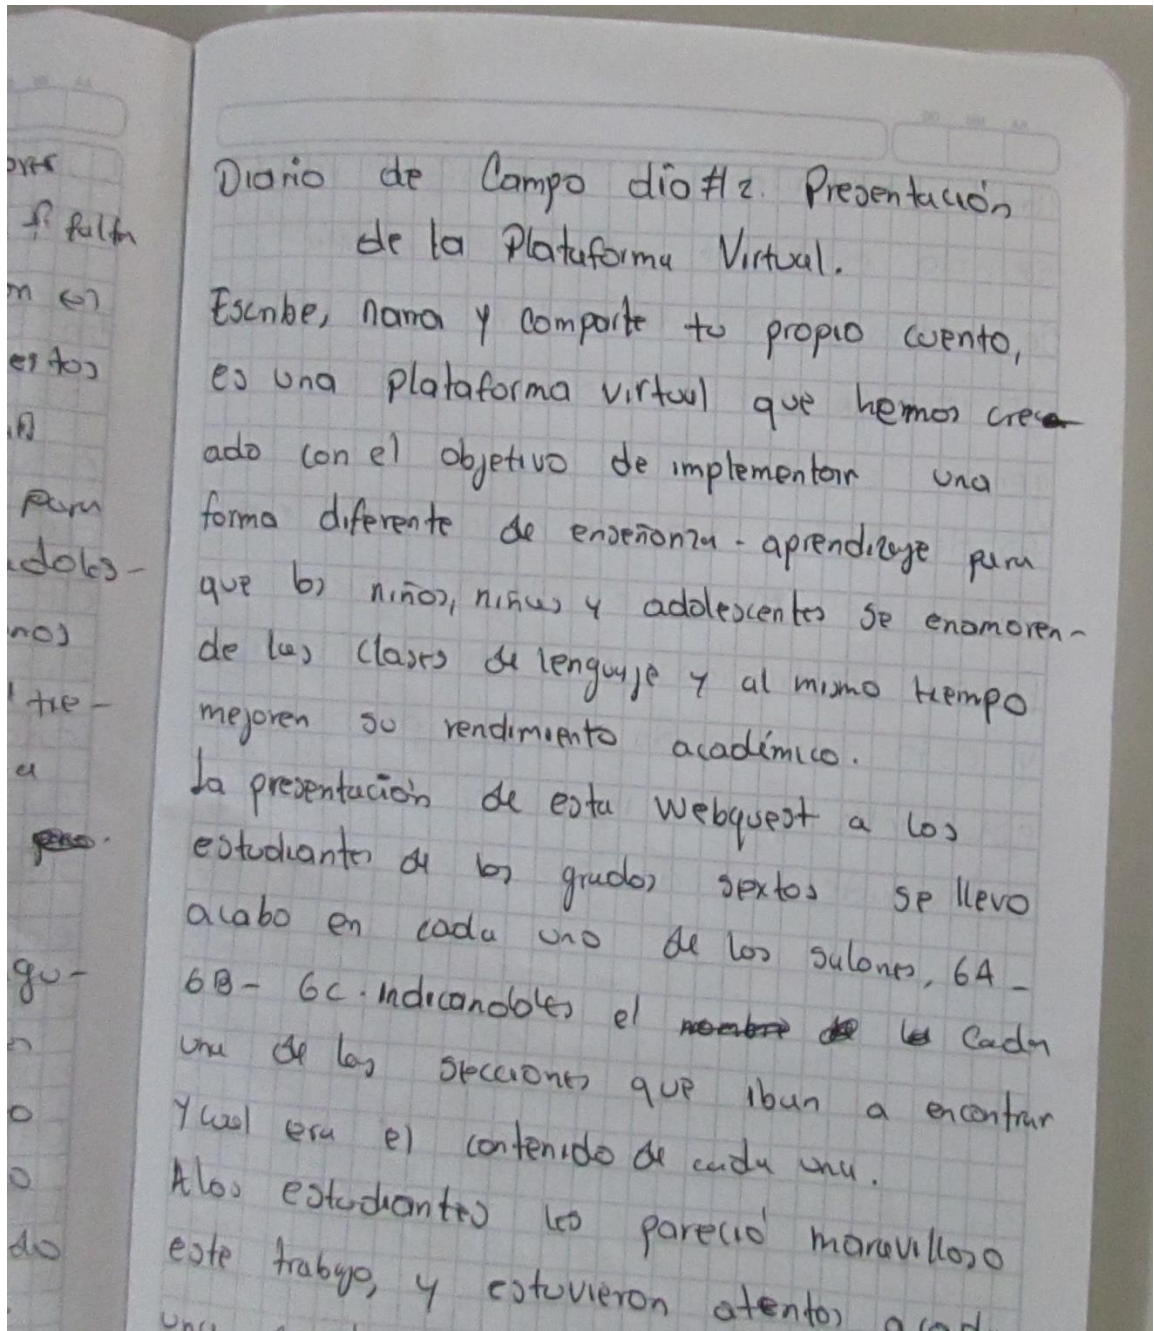 ores
falta
en es
estos
para
adoles-
nos
tre-
a
gu-
o
o
do
Diario de Campo dia #2. Presentación
de la Plataforma Virtual.
Escribe, narra y comparte tu propio cuento,
es una plataforma virtual que hemos cre
ado con el objetivo de implementar una
forma diferente de enseñanza - aprendizaje para
que los niños, niñas y adolescentes se enamoren-
de las clases de lenguaje y al mismo tiempo
mejoren su rendimiento académico.
La presentación de esta Webquest a los
estudiantes de los grados sextos se llevo
acabo en cada uno de los salones, 6A -
6B - 6C. indicandoles el nombre de la Cada
una de las secciones que iban a encontrar
Y cual era el contenido de cada una.
A los estudiantes les pareció maravilloso
este trabajo, y estuvieron atentos